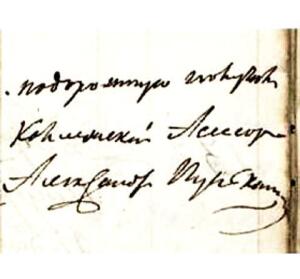 подорожную получил
Коллежский Асессор
Александр Пушкин